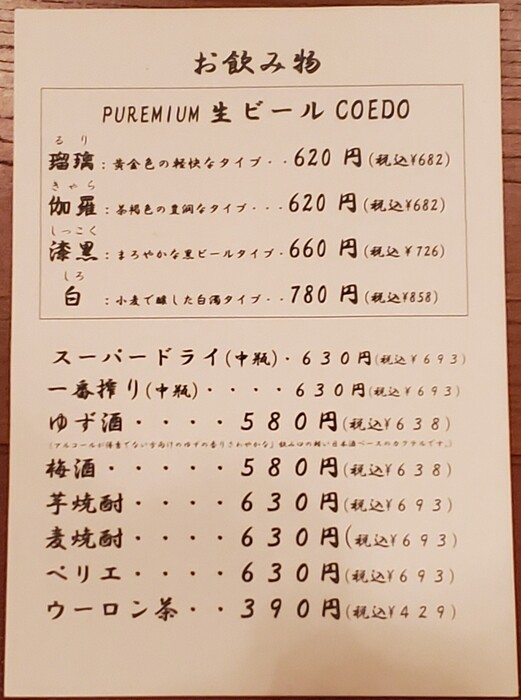 お飲み物
PUREMIUM 生ビール COEDO
るり
瑠璃：黄金色の軽快なタイプ・・620 円(税込¥682)
きゃら
伽羅：茶褐色の豊潤なタイプ・・・620 円(税込¥682)
しっこく
漆黒：まろやかな黒ビールタイプ・660 円(税込¥726)
しろ
白：小麦で醸した白濁タイプ・・780 円(税込¥858)
スーパードライ(中瓶)・630円(税込¥693)
一番搾り(中瓶)・・・・630円(税込¥693)
ゆず酒・・・・580円(税込¥638)
(アルコールが得意でない方向けのゆずの香りさわやかな」飲み口の軽い日本酒ベースのカクテルです。)
梅酒・・・・・580円(税込¥638)
芋焼酎・・・・630円(税込¥693)
麦焼酎・・・・630円(税込¥693)
ペリエ・・・・630円(税込¥693)
ウーロン茶・・390円(税込¥429)